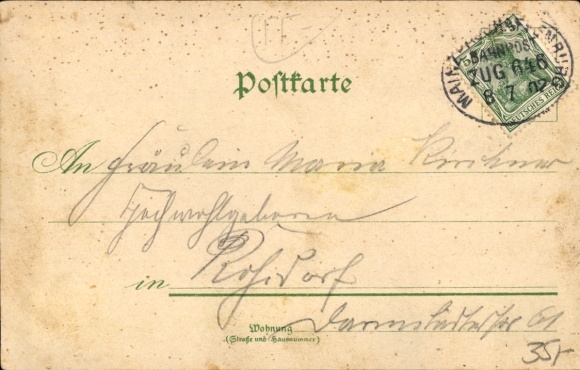 Postkarte
BAHNPOST
ZUG 646
8 7 02
DEUTSCHES REICH
An Fräulein Maria Kirchner
Hochwohlgeboren
in Roßdorf
Wohnung
(Straße und Hausnummer)
Darmstädterstr 61
35,-